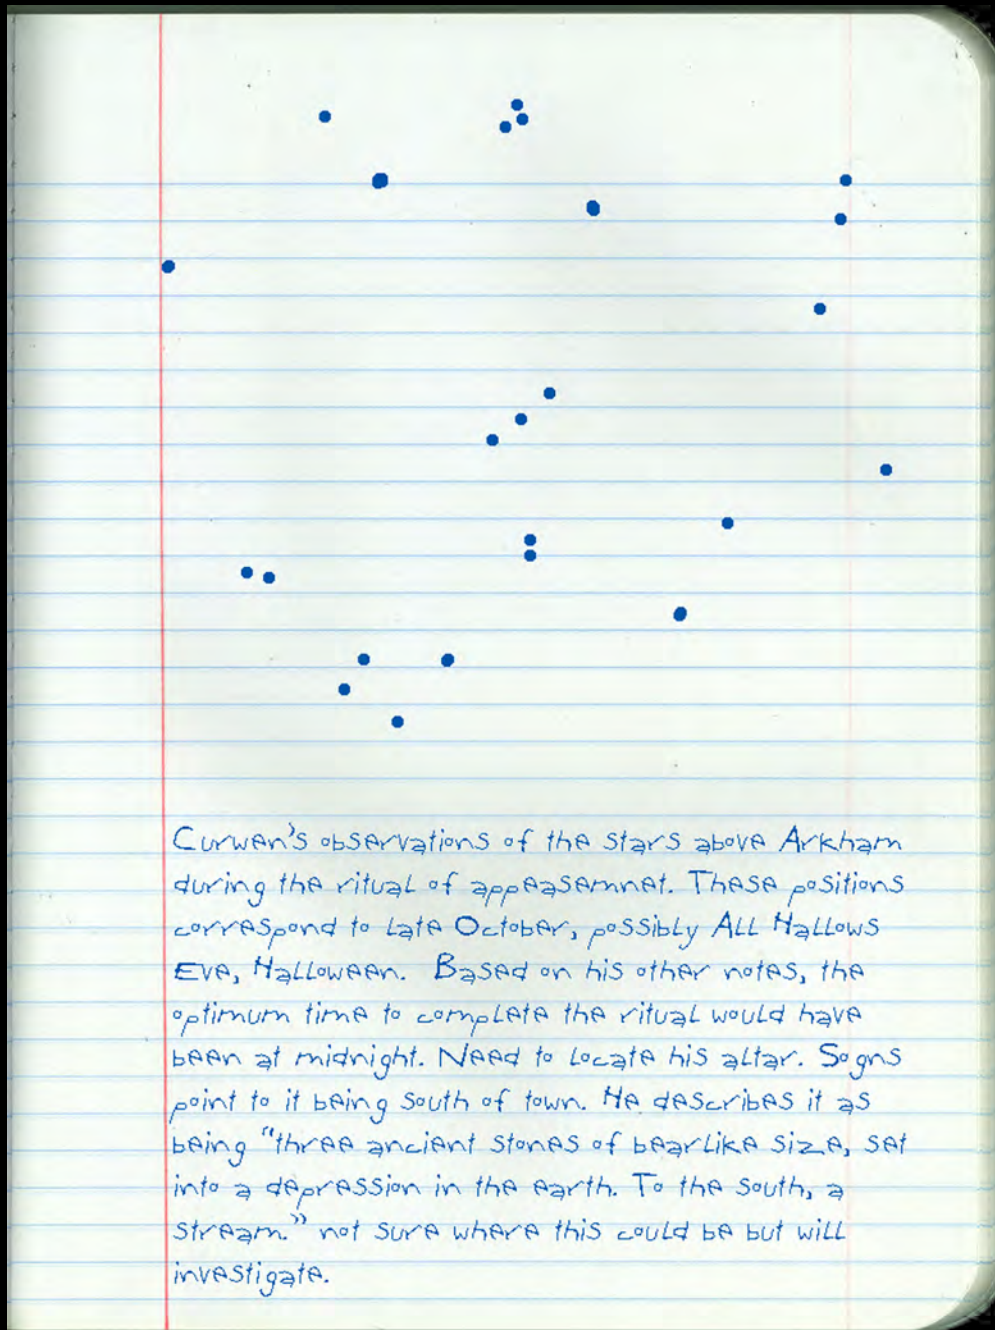 Curwen's observations of the stars above Arkham
during the ritual of appeasemnet. These positions
correspond to late October, possibly All Hallows
Eve, Halloween. Based on his other notes, the
optimum time to complete the ritual would have
been at midnight. Need to locate his altar. Sogns
point to it being south of town. He describes it as
being "three ancient stones of bearlike size, set
into a depression in the earth. To the south, a
stream." not sure where this could be but will
investigate.